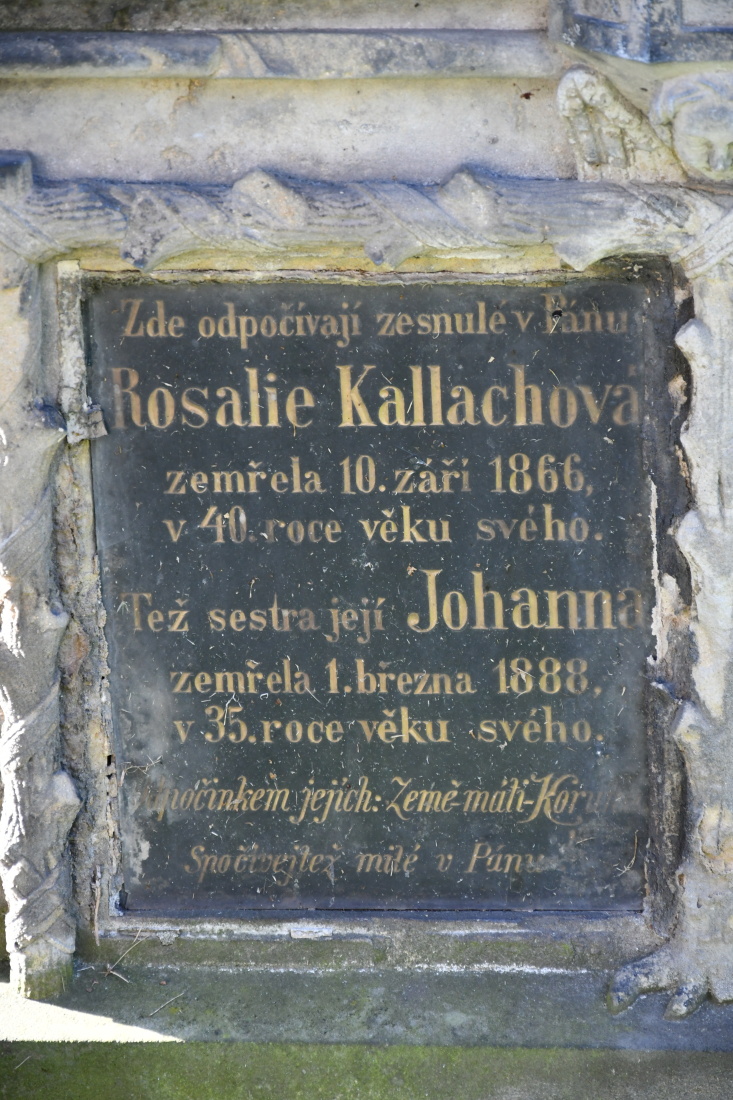 Zde odpočívají zesnulé v Pánu
Rosalie Kallachová
zemřela 10. září 1866,
v 40. roce věku svého.
Též sestra její Johanna
zemřela 1. března 1888,
v 35. roce věku svého.
jejich: Země-máti-
Spočívejtež milé v Pánu